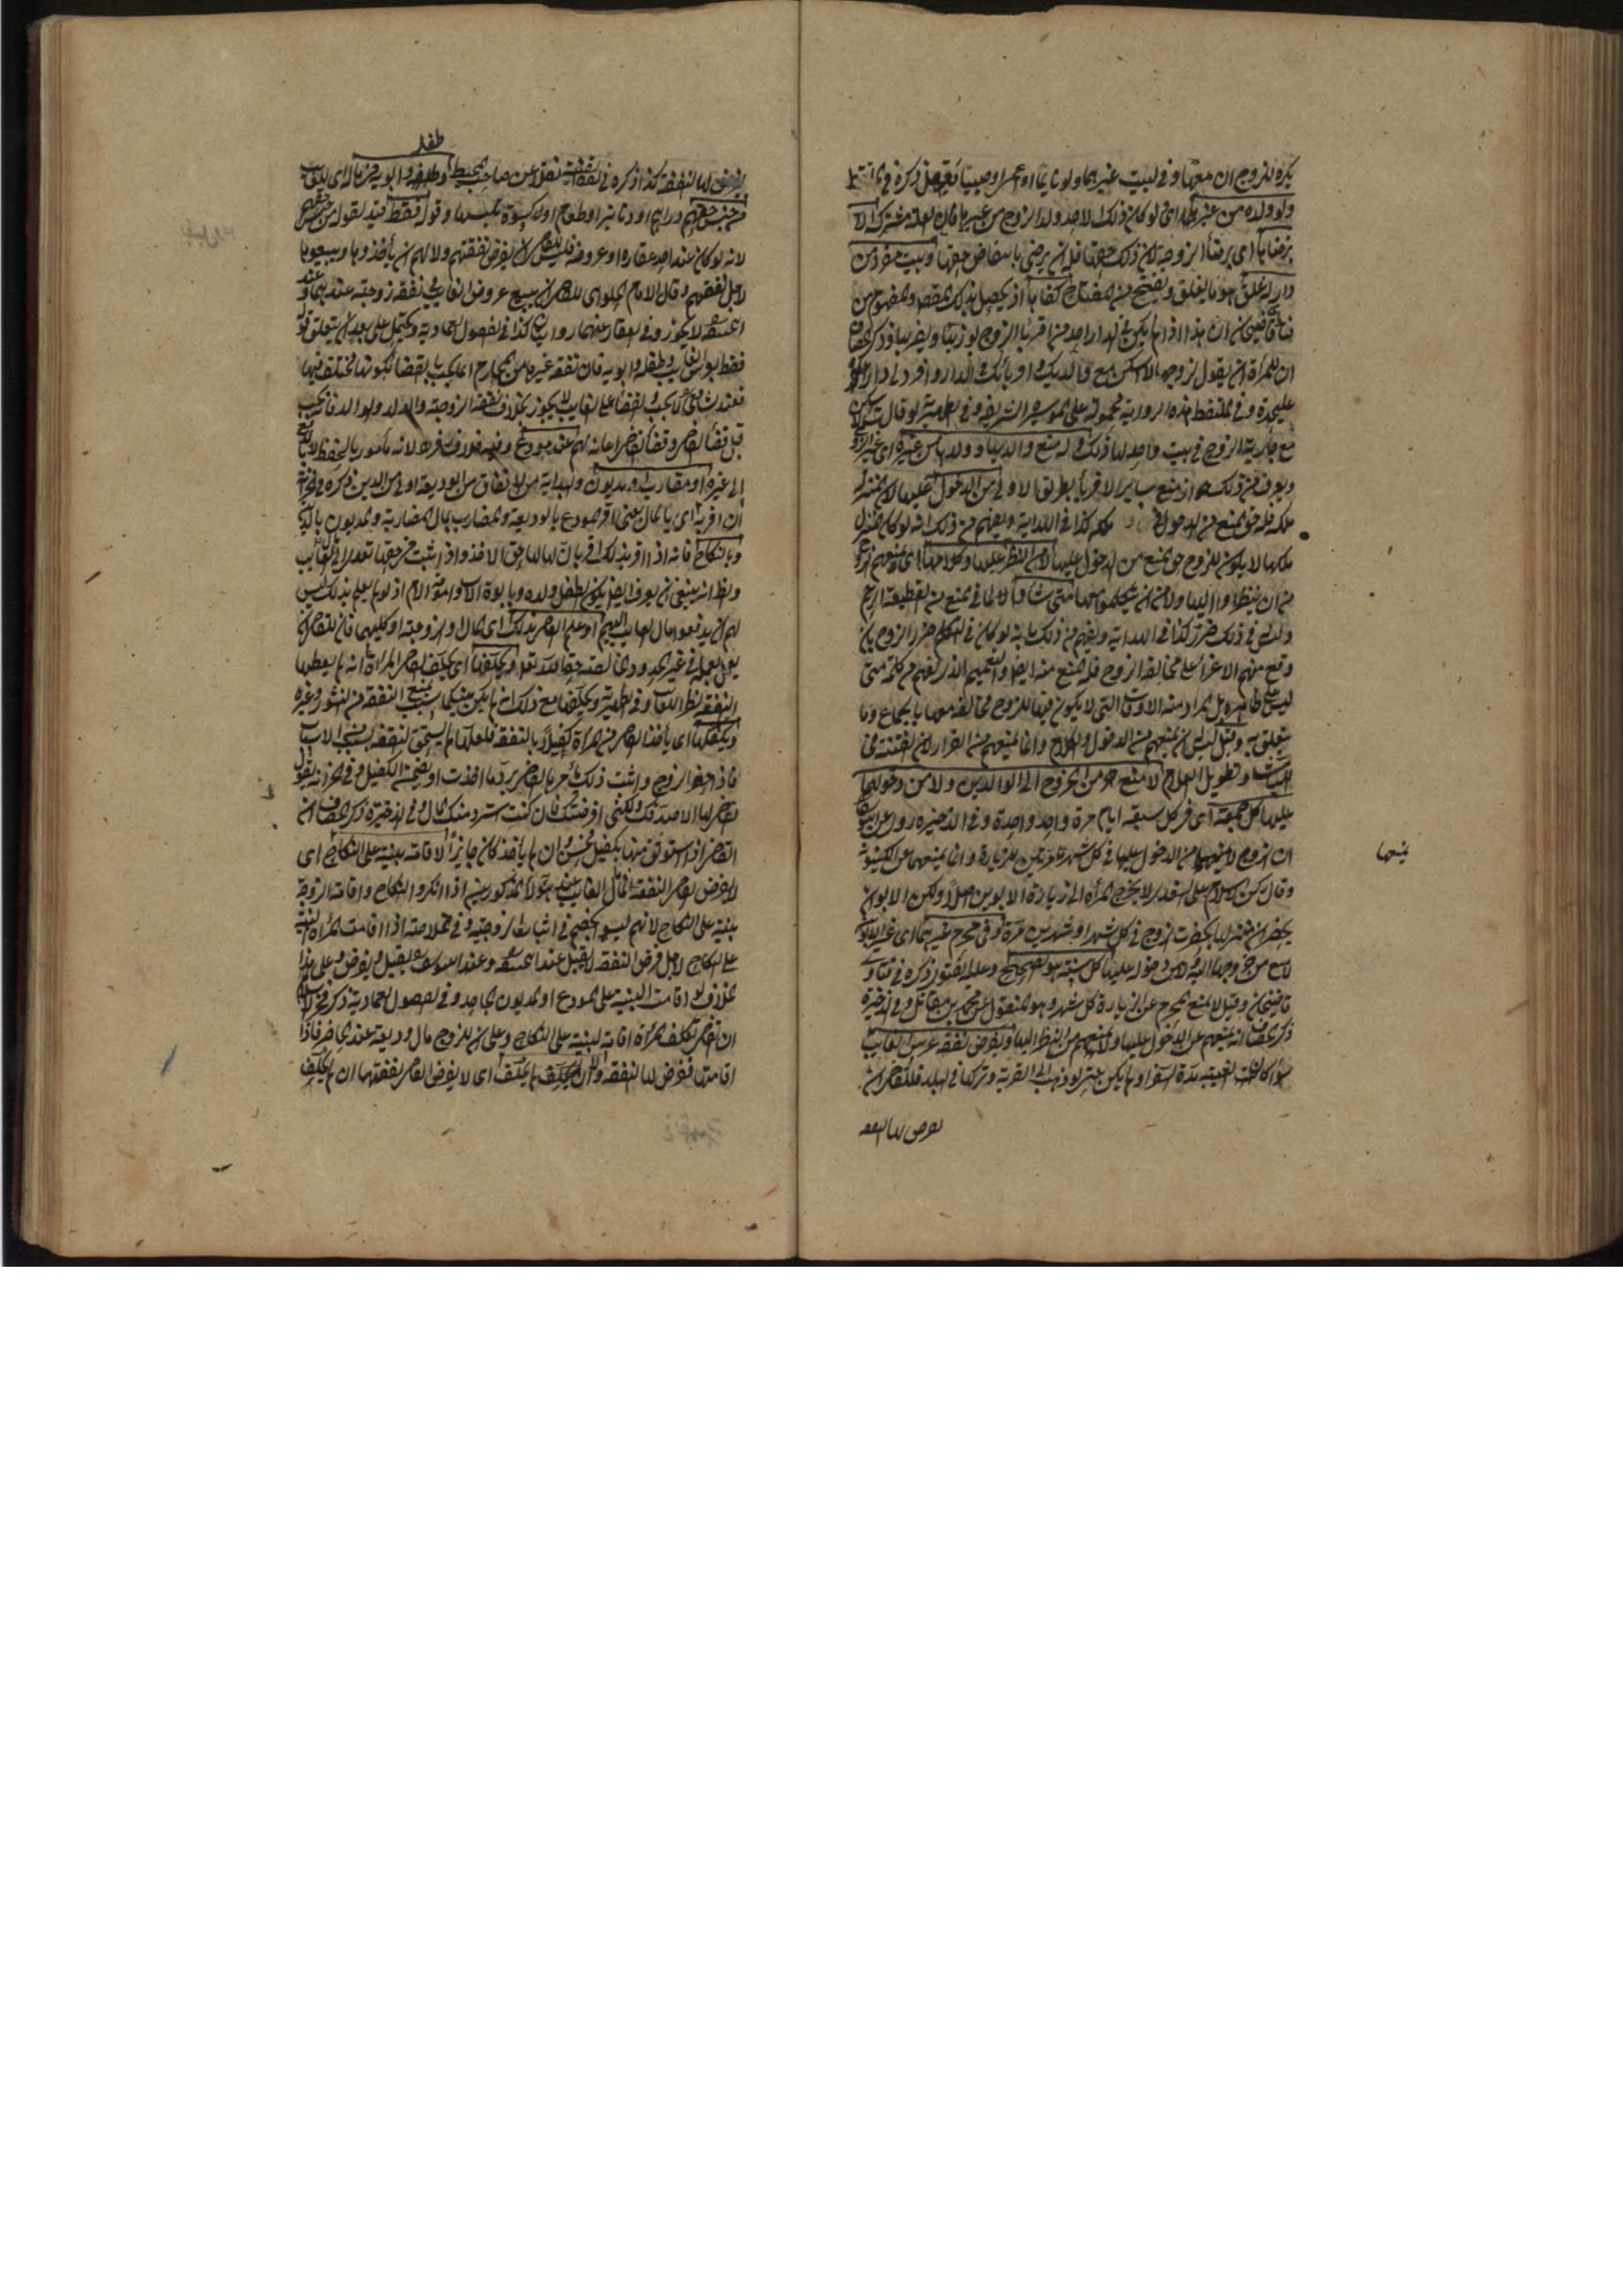 يكره للزوج ان معها وفي البيت غيرهما ولو نائما او اعمى او صبيا يعقل ذكره في
ولو ولده من غيرها اى لو كان ذلك الاحد ولد الزوج من غيرها فان العلة مشتركة الا
برضاها اى برضاء الزوجة لان ذلك حقها فلها ان ترضى بانتقاص حقها وبيت مفرد من
دار له غلق هو ما يغلق ويفتح من المفتاح كفاها اذ يحصل بذلك المقصد والمفهوم من
قاضيخان ان هذا اذا لم يكن في الدار احد من اقرباء الزوج يوذيها ويضربها وذكر الخصاف
ان للمراة ان تقول لزوجها لا اسكن مع والديك او اقربائك في الدار وافرد لى دار
عليحدة وفي الملتقط هذه الرواية محمولة على الموسرة الشريفة وفي الظهيرية لو قال
مع جارية الزوج في بيت واحد لها ذلك وله منع والديها وولدها من غيره اى غير الزوج
ويعرف من ذلك جواز منع ساير الاقرباء بطريق الاولى من الدخول عليها لان المنزل
ملكه فله حق المنع من الدخول ملكه كذا في الهداية ويفهم من ذلك انه لو كان المنزل
ملكها لا يكون للزوج حق المنع من الدخول عليها لا من النظر عليها وكلامها اى لا يمنعهم
من ان ينظروا اليها ولا من ان يتكلموا معها متى شاؤا لما في المنع من القطيعة الرحم
وليس في ذلك ضرر كذا في الهداية ويفهم من ذلك انه لو كان في التكلم ضرر الزوج بان
وقع منهم الاغراء على مخالفة الزوج فله المنع منه ايضا والتعميم الذى يفهم من كلمة متى
ليس على ظاهره بل المراد منه الاوقات التى لا يكون فيها للزوج مخالفة معها بالجماع وما
يتعلق به وقيل ليس له ان يمنعهم من الدخول والكلام وانما يمنعهم من القرار لان الفتنة في
البيات وتطويل الكلام لا منع من الخروج الى الوالدين ولا من دخولهما
عليها كل جمعة اى في كل سبعة ايام مرة واحدة وفي الذخيرة روى عن ابى يوسف
ان الزوج لا يمنعهما من الدخول عليها في كل شهر مرتين للزيارة وانما يمنعهما عن الكينونة
يمنعها
وقال ركن الاسلام على السغدى لا تخرج المرأة الى زيارة الابوين اصلا ولكن الابوان
يحضران منزلها بحضرت الزوج في كل شهر او شهرين مرة وفي محرم غيرهما اى غير الابوين
لا منع من خروجها اليه ولا من دخوله عليها كل سنة هو الصحيح وعليه الفتوى ذكره في فتاوى
قاضيخان وقيل لا يمنع المحرم عن الزيارة كل شهر وهو المنقول عن محمد بن مقاتل وفي الذخيرة
ذكر الخصاف انه يمنعهم عن الدخول عليها ولا يمنعهم من النظر اليها وتفرض نفقة عرس الغايب
سواء كانت الغيبة مدة السفر او لم يكن حتى لو ذهب الى القرية وتركها في البلد فللقاضى ان
يفرض لها النفقة
طفله
يفرض لها النفقة كذا ذكره في القنية نقلا عن صاحب المحيط وطفله وابويه في مال له اى للغايب
من جنس حقهم دراهم او دنانير او طعام او كسوة تلبسها وقوله فقط قيد لقوله من جنس حقهم
لانه لو كان عند احد عقاره او عروضه فليس للقاضى ان يفرض نفقتهم ولا لهم ان يأخذوها ويبيعوها
لاجل نفقتهم وقال الامام الحلوانى للقاضى ان يبيع عروض الغايب في نفقة زوجته عندهما وعند
ابى حنيفة لا يجوز وفي العقار عنهما روايتان كذا في الفصول العمادية ويحتمل على بعد ان يتعلق قوله
فقط بعرس الغايب وطفله وابويه فان نفقة غيره من المحارم انما تجب بالقضاء لكونها مختلف فيها
قبل قضاء القاضى وقضاء القاضى اعانة لهم عند مودع وفيه خلاف زفر لانه مأمور بالحفظ لا بالدفع
الى غيره او مضارب او مديون والبداية من الانفاق من الوديعة اولى من الدين ذكره في الخزانة
ان اقر به اى بالمال يعنى اقر المودع بالوديعة والمضارب بمال المضاربة والمديون بالدين
وبالنكاح فانه اذا اقر بذلك اقر بان لها حق الاخذ واذا ثبت في حقها تعدى الى الغايب
والظاهر انه ينبغى ان يعرف ايضا بكون الطفل ولده وبابوة الاب وامومة الام اذ لو لم يعلم بذلك ليس
لهم ان يدفعوا مال الغايب اليهم او علم القاضى ذلك اى المال والزوجية او كليهما فان للقاضى ان
يعمل بعلمه في غير الحدود الخالصة حقا لله تعالى ويحلفها اى يحلف القاضى المرأة انه لم يعطها
النفقة نظرا للغايب وفي الظهيرية ويحلفها مع ذلك انه لم يكن بينكما سبب يمنع النفقة من النشوز وغيره
ويكفلها اى يأخذ القاضى من المرأة كفيلا بالنفقة فلعلها لم يستحق النفقة بسبب من الاسباب
فاذا حضر الزوج واثبت ذلك امر القاضى برد ما اخذت او يضمنه الكفيل وفي الخزانة يقول
القاضى لها لا اصدقك ولكنى اقرضتك فان كنت استرد منك المال وفي الذخيرة ذكر الخصاف ان
القاضى اذا استوثق منها بكفيل فحسن وان لم يأخذ كان جايزا لا اقامة بينة على النكاح اى
لا يفرض القاضى النفقة في مال الغايب عند هؤلاء المذكورين اذا انكروا النكاح واقامت الزوجة
بينة على النكاح لانهم ليسوا بخصم في اثبات الزوجية وفي الخلاصة اذا اقامت المرأة البينة
على النكاح لاجل فرض النفقة لا يقبل عند ابى حنيفة وعند ابى يوسف يقبل ويفرض وعلى هذا
الخلاف لو اقامت البينة على المودع او المديون الجاحد وفي الفصول العمادية ذكر فخر الاسلام
ان القاضى تكلف المرأة اقامة البينة على النكاح وعلى ان للزوج مال وديعة عند الحاضر فاذا
اقامتها فتفرض لها النفقة